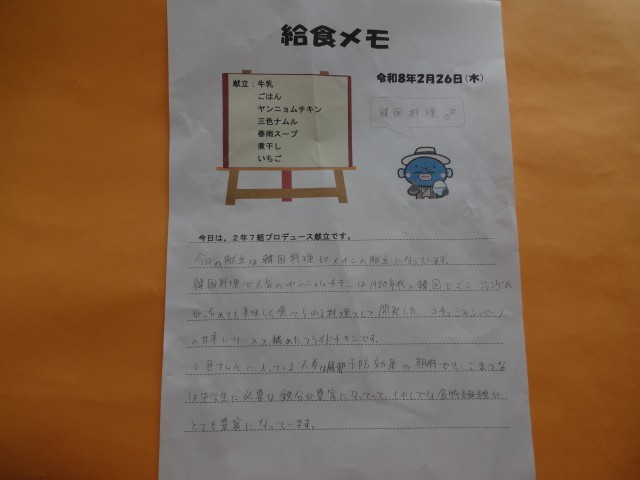 給食メモ
令和8年2月26日(木)
献立：牛乳
ごはん
ヤンニョムチキン
三色ナムル
春雨スープ
煮干し
いちご
韓国料理
今日は、2年7組プロデュース献立です。
今日の献立は韓国料理がメインの献立になっています。
韓国料理で人気のヤンニョムチキンは1980年代の韓国で
が、冷めても美味しく食べられる料理として開発した、コチュジャンベース
の甘辛いソースを絡めたフライドチキンです。
三色ナムルに入っている人参は風邪予防効果が期待でき、こまつな
は中学生に必要な鉄分が豊富になってい て、もやしでは食物繊維が
とても豊富になっています。